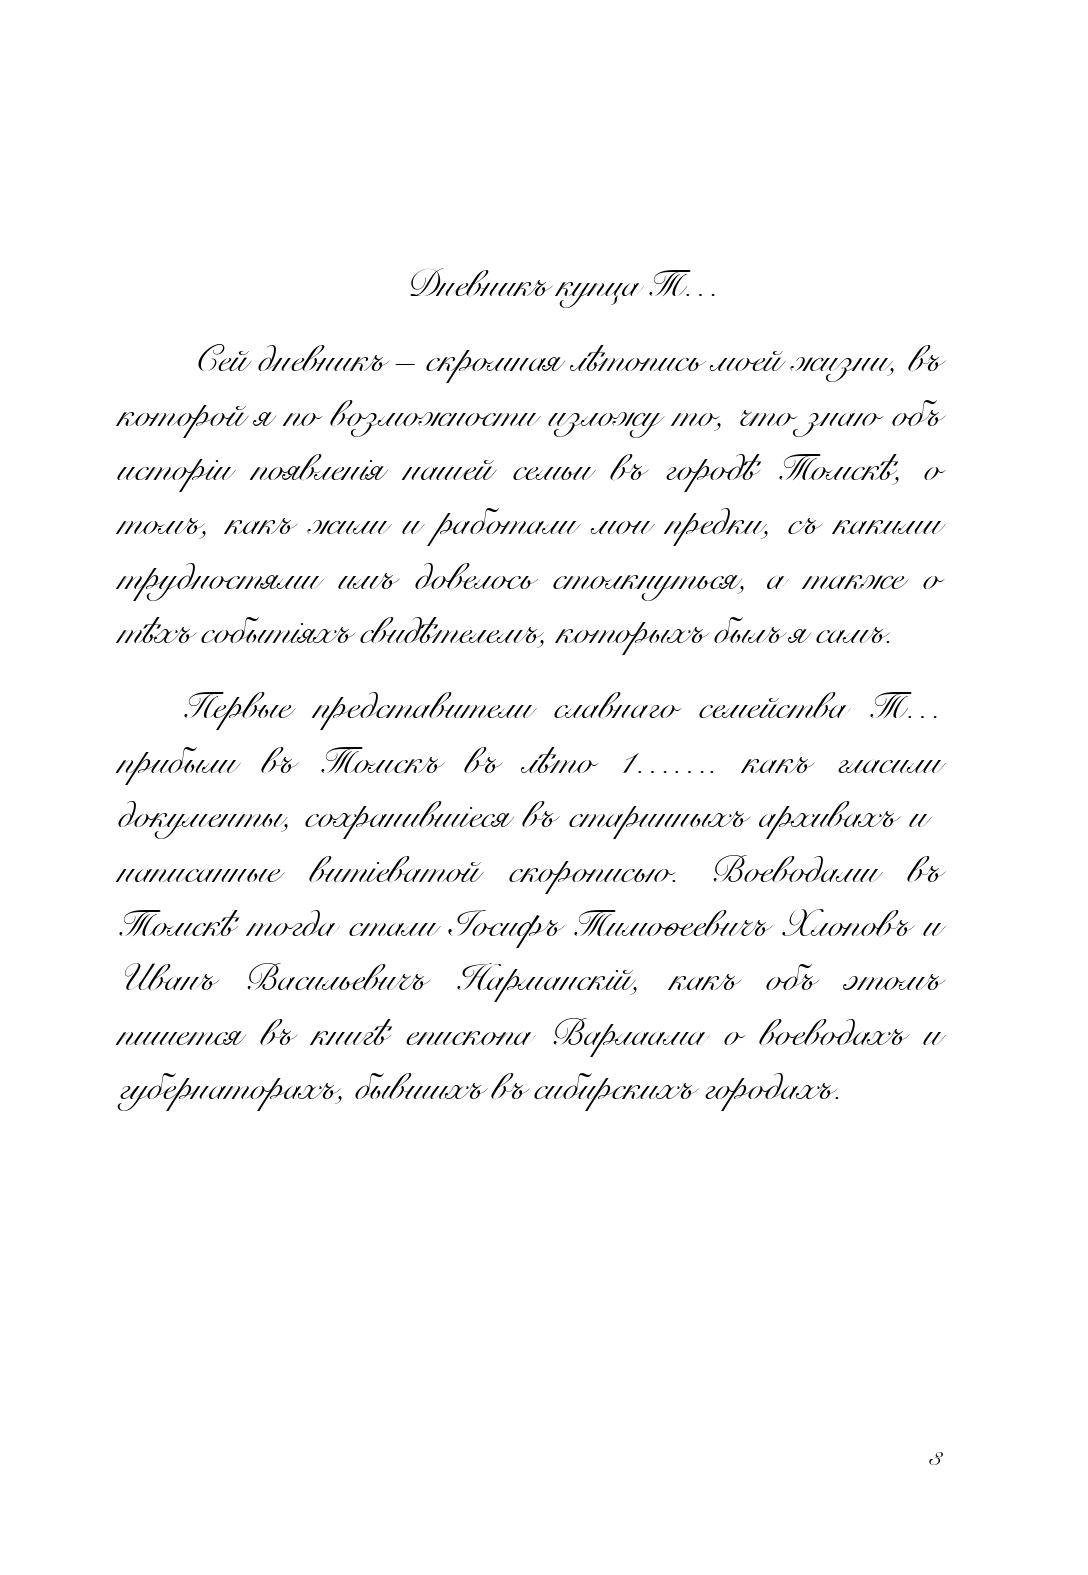 Дневникъ купца Т...
Сей дневникъ – скромная лѣтопись моей жизни, въ
которой я по возможности изложу то, что знаю объ
исторіи появленія нашей семьи въ городѣ Томскѣ, о
томъ, какъ жили и работали мои предки, съ какими
трудностями имъ довелось столкнуться, а также о
тѣхъ событіяхъ свидѣтелемъ, которыхъ былъ я самъ.
Первые представители славнаго семейства Т...
прибыли въ Томскъ въ лѣто 1....... какъ гласили
документы, сохранившіеся въ старинныхъ архивахъ и
написанные витіеватой скорописью. Воеводами въ
Томскѣ тогда стали Іосифъ Тимоѳеевичъ Хлоповъ и
Иванъ Васильевичъ Нарманскій, какъ объ этомъ
пишется въ книгѣ епископа Варлаама о воеводахъ и
губернаторахъ, бывшихъ въ сибирскихъ городахъ.
3